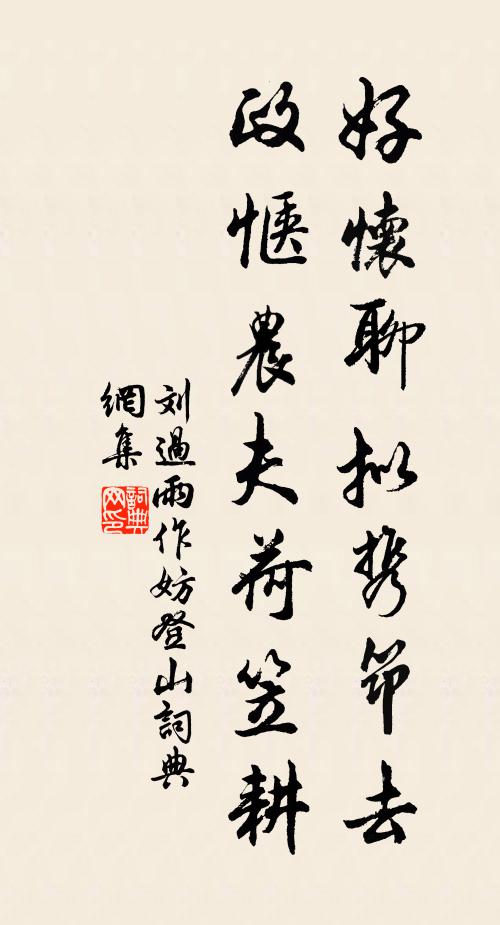 好懷聊拟携笻去
政惬農夫荷笠耕
刘過雨作妨登山詞典
網集
詞典
网印